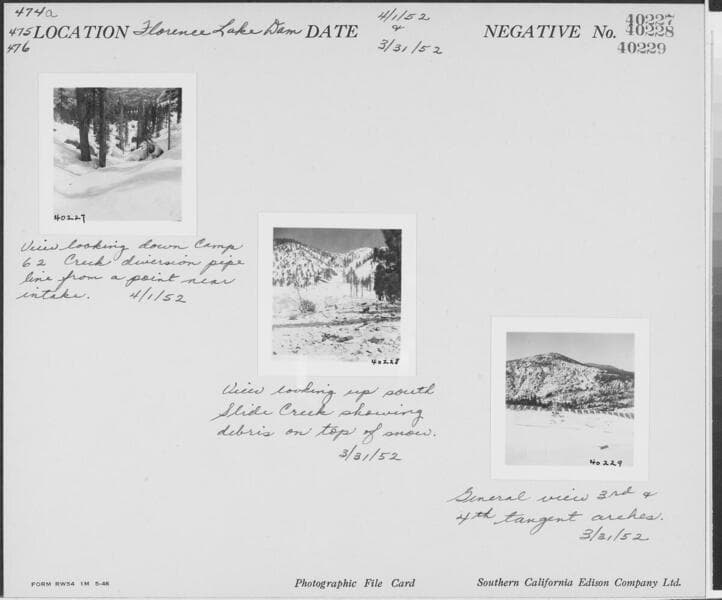 474a
475
476
LOCATION Florence Lake Dam DATE 4/1/52 & 3/31/52 NEGATIVE No. 40227 40228 40229
40227
View looking down Camp
62 Creek diversion pipe
line from a point near
intake. 4/1/52
40228
View looking up south
Slide Creek showing
debris on top of snow.
3/31/52
40229
General view 3rd &
4th tangent arches.
3/31/52
FORM RW54 1M 5-48 Photographic File Card Southern California Edison Company Ltd.